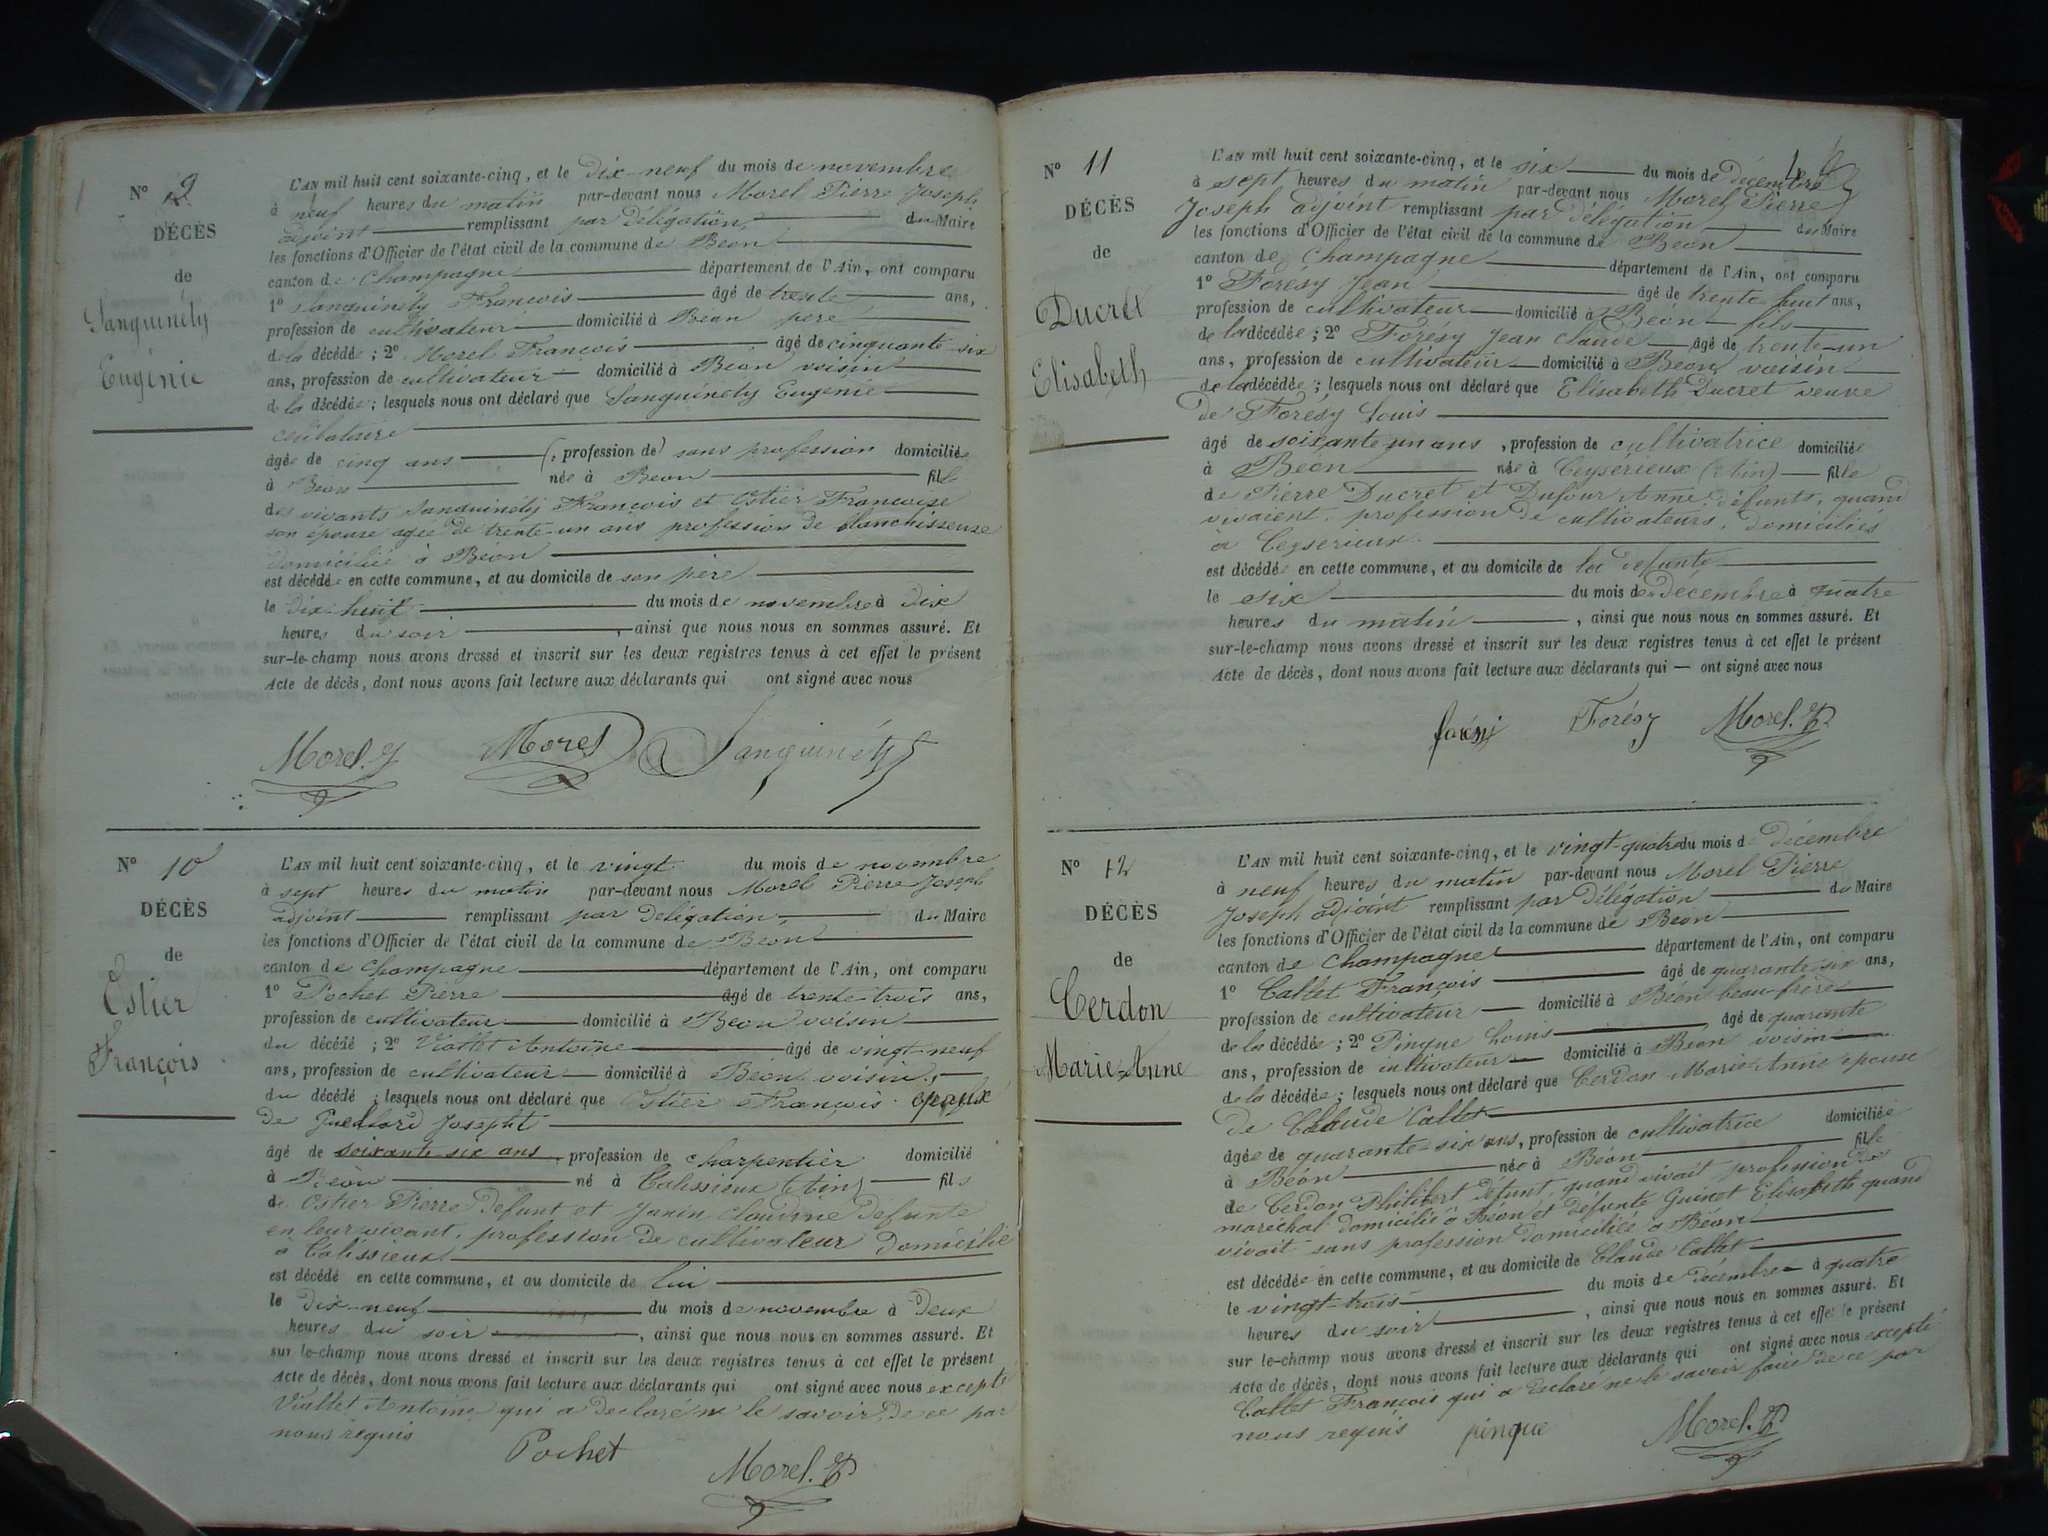 N° 9
DÉCÈS
de
Sanguinety
Eugénie
L'AN mil huit cent soixante-cinq, et le dix-neuf du mois de novembre
à neuf heures du matin par-devant nous Morel Pierre Joseph
adjoint remplissant par délégation du Maire
les fonctions d'Officier de l'état civil de la commune de Béon
canton de Champagne département de l'Ain, ont comparu
1° Sanguinety François âgé de trente ans,
profession de cultivateur domicilié à Béon père
de la décédée ; 2° Morel François âgé de cinquante-six
ans, profession de cultivateur domicilié à Béon voisin
de la décédée ; lesquels nous ont déclaré que Sanguinety Eugénie
celibataire
âgée de cinq ans (, profession de) sans profession domiciliée
à Béon née à Béon fille
des vivants Sanguinety François et Ostier Françoise
son épouse agée de trente-un ans profession de blanchisseuse
domiciliée à Béon
est décédée en cette commune, et au domicile de son père
le dix-huit du mois de novembre à dix
heures du soir , ainsi que nous nous en sommes assuré. Et
sur-le-champ nous avons dressé et inscrit sur les deux registres tenus à cet effet le présent
Acte de décès, dont nous avons fait lecture aux déclarants qui ont signé avec nous
Morel. F Morel Sanguinéty
N° 10
DÉCÈS
de
Estier
François
L'AN mil huit cent soixante-cinq, et le vingt du mois de novembre
à sept heures du matin par-devant nous Morel Pierre Joseph
adjoint remplissant par délégation du Maire
les fonctions d'Officier de l'état civil de la commune de Béon
canton de Champagne département de l'Ain, ont comparu
1° Pochet Pierre âgé de trente-trois ans,
profession de cultivateur domicilié à Béon voisin
du décédé ; 2° Viallet Antoine âgé de vingt-neuf
ans, profession de cultivateur domicilié à Béon voisin
du décédé ; lesquels nous ont déclaré que Ostier François
de Josephte
âgé de soixante six ans, profession de charpentier domicilié
à Béon né à Calissieux (Ain) fils
de Ostier Pierre défunt et Janin Claudine défunte
en leur vivant, profession de cultivateur domicilié
à Calissieux
est décédé en cette commune, et au domicile de lui
le dix-neuf du mois de novembre à deux
heures du soir , ainsi que nous nous en sommes assuré. Et
sur le-champ nous avons dressé et inscrit sur les deux registres tenus à cet effet le présent
Acte de décès, dont nous avons fait lecture aux déclarants qui ont signé avec nous excepté
Viallet Antoine qui a déclaré ne le savoir, de ce par
nous requis
Pochet Morel. P
N° 11
DÉCÈS
de
Ducret
Elisabeth
L'AN mil huit cent soixante-cinq, et le six du mois de décembre
à sept heures du matin par-devant nous Morel Pierre
Joseph adjoint remplissant par délégation du Maire
les fonctions d'Officier de l'état civil de la commune de Béon
canton de Champagne département de l'Ain, ont comparu
1° Forésy Jean âgé de trente huit ans,
profession de cultivateur domicilié à Béon fils
de la décédée ; 2° Forésy Jean Claude âgé de trente-un
ans, profession de cultivateur domicilié à Béon voisin
de la décédée ; lesquels nous ont déclaré que Elisabeth Ducret veuve
de Forésy Louis
âgé de soixante un ans, profession de cultivatrice domiciliée
à Béon née à Ceyserieux (Ain) fille
de Pierre Ducret et Dufour Anne défunts, quand
vivaient, profession de cultivateurs, domiciliés
à Ceyserieux
est décédée en cette commune, et au domicile de la défunte
le six du mois de décembre à quatre
heures du matin , ainsi que nous nous en sommes assuré. Et
sur-le-champ nous avons dressé et inscrit sur les deux registres tenus à cet effet le présent
Acte de décès, dont nous avons fait lecture aux déclarants qui ont signé avec nous
Forésy Morel. P
N° 12
DÉCÈS
de
Cerdon
Marie-Anne
L'AN mil huit cent soixante-cinq, et le vingt-quatre du mois de décembre
à neuf heures du matin par-devant nous Morel Pierre
Joseph adjoint remplissant par délégation du Maire
les fonctions d'Officier de l'état civil de la commune de Béon
canton de Champagne département de l'Ain, ont comparu
1° Callet François âgé de quarante-six ans,
profession de cultivateur domicilié à Béon beau-frère
de la décédée ; 2° Pinque Louis âgé de quarante
ans, profession de cultivateur domicilié à Béon voisin
de la décédée ; lesquels nous ont déclaré que Cerdon Marie-Anne épouse
de Claude Callet
âgée de quarante-six ans, profession de cultivatrice domiciliée
à Béon née à Béon fille
de Cerdon Philibert défunt, quand vivait profession de
maréchal domicilié à Béon et défunte Guinet Elisabeth quand
vivait sans profession domiciliée à Béon
est décédée en cette commune, et au domicile de Claude Callet
le vingt-trois du mois de décembre à quatre
heures du soir , ainsi que nous nous en sommes assuré. Et
sur le-champ nous avons dressé et inscrit sur les deux registres tenus à cet effet le présent
Acte de décès, dont nous avons fait lecture aux déclarants qui ont signé avec nous excepté
Callet François qui a déclaré ne le savoir faire de ce par
nous requis pinque Morel. P